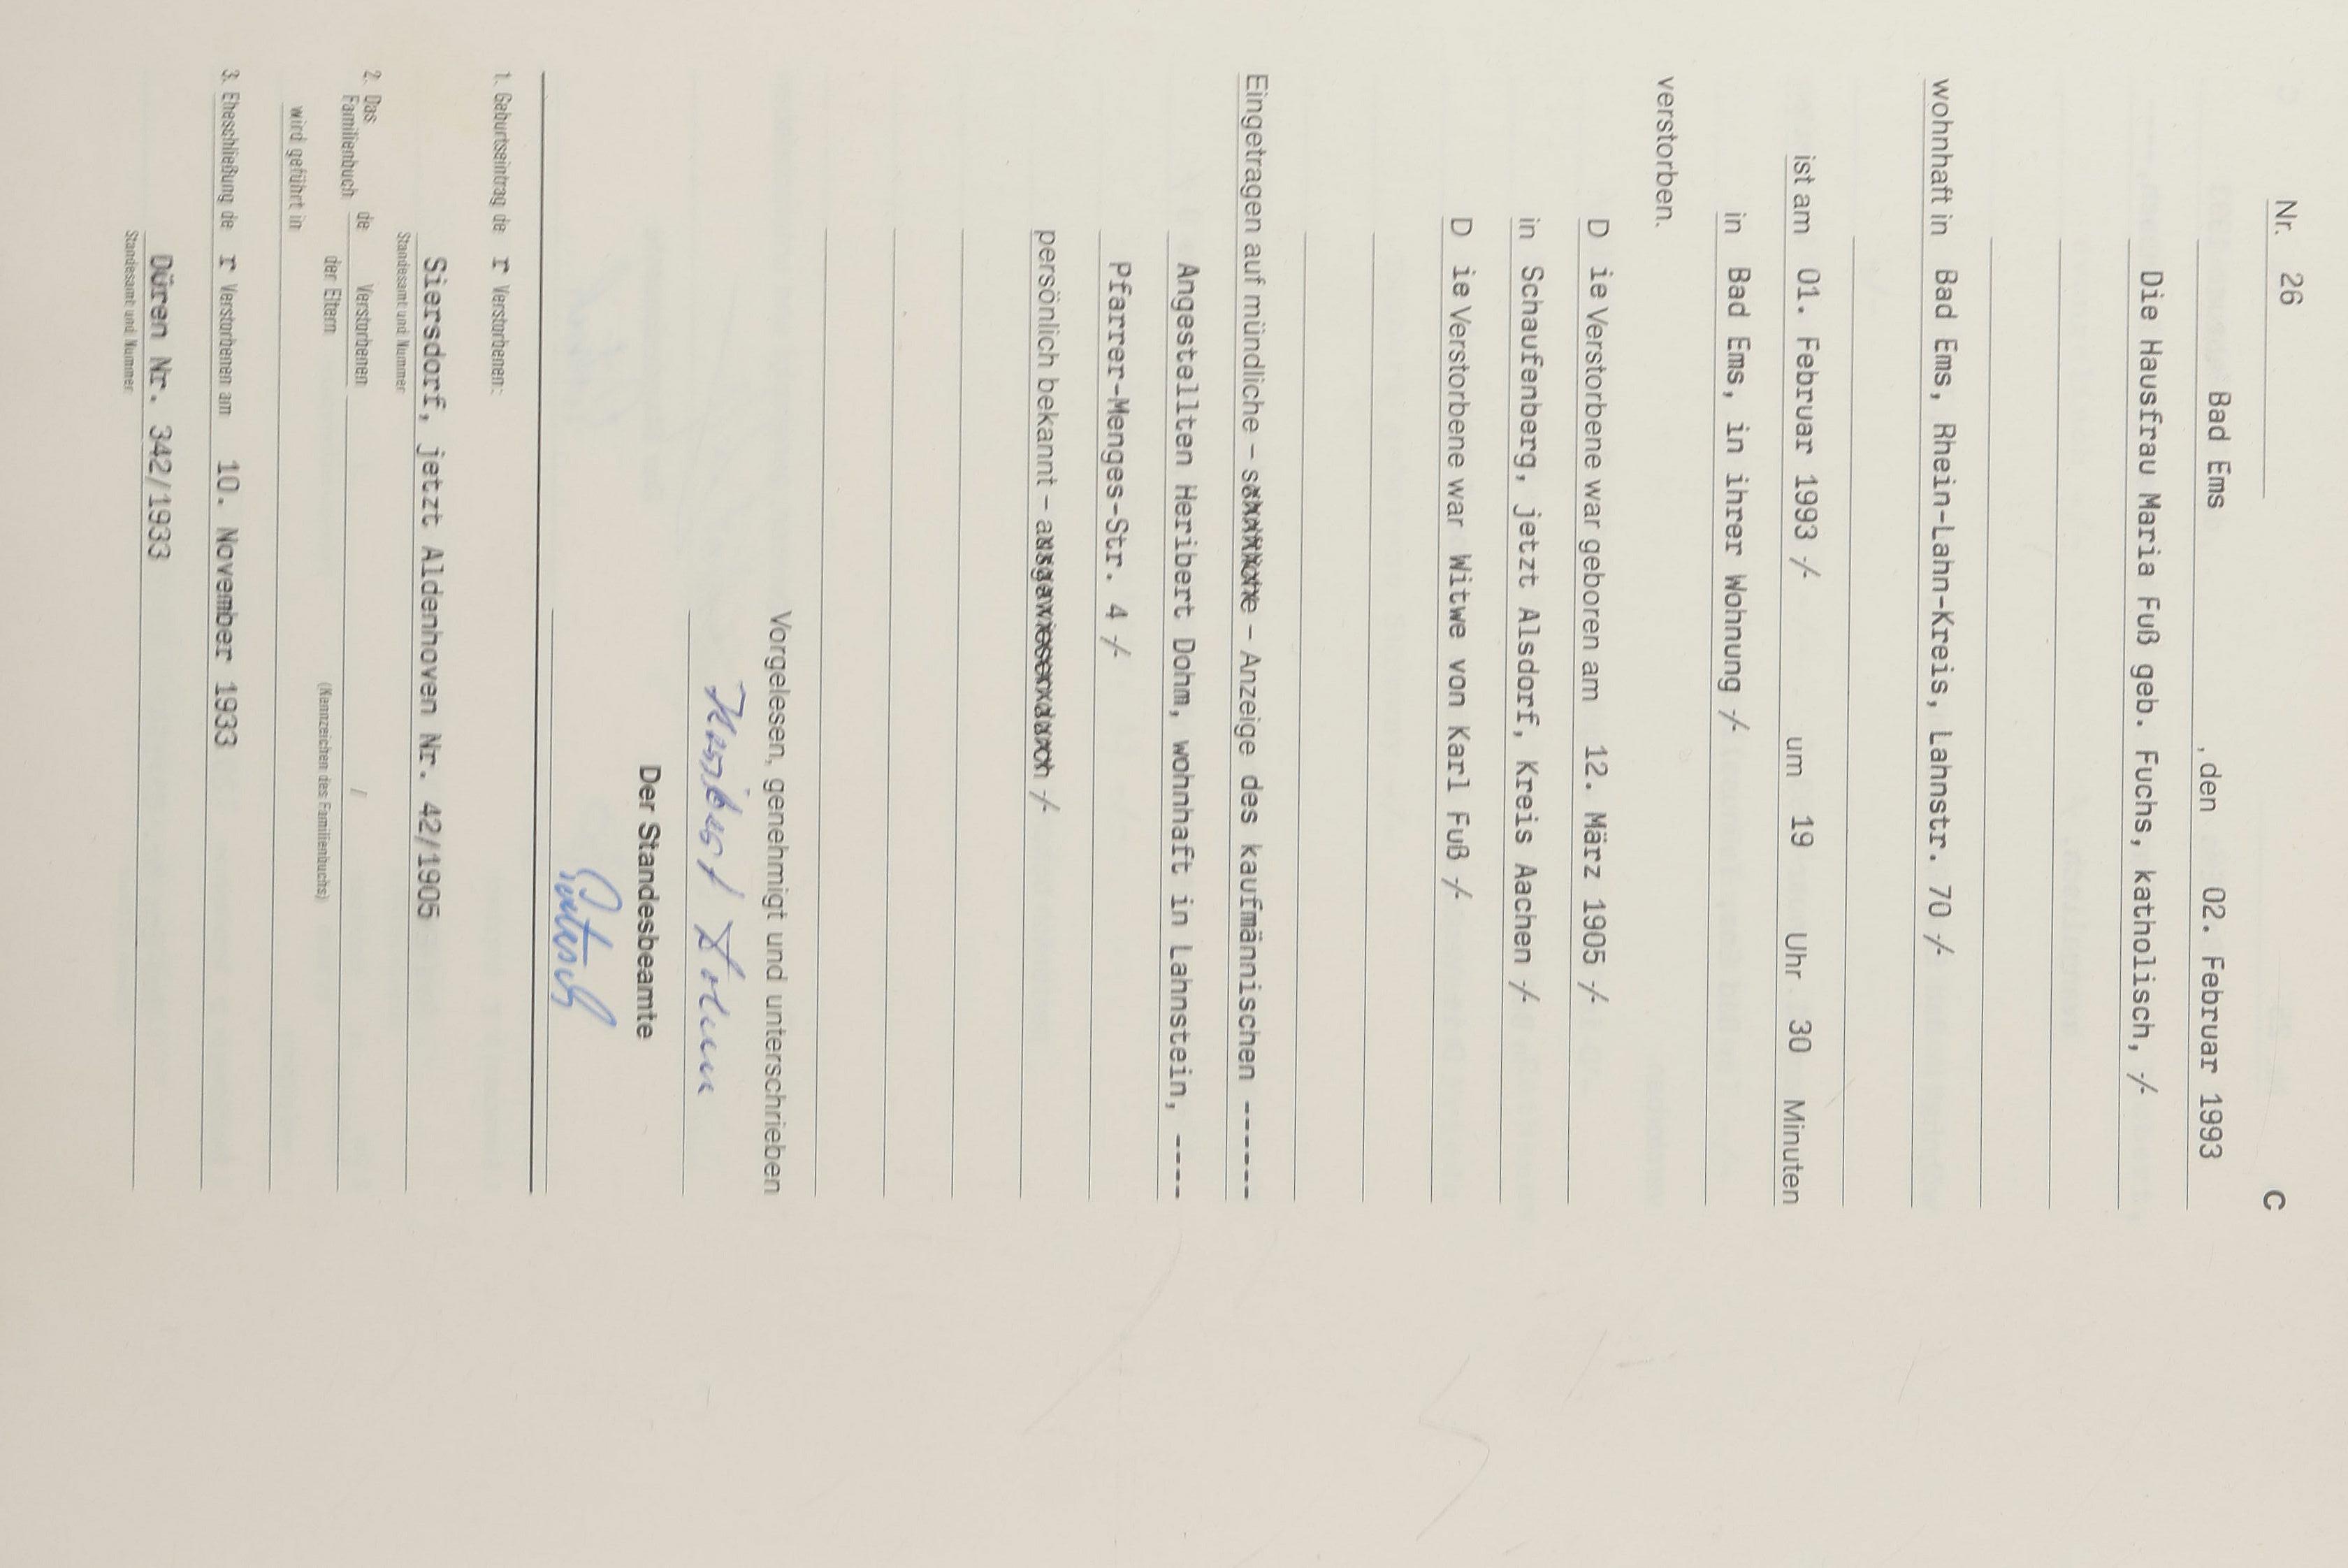 Nr. 26 C
Bad Ems , den 02. Februar 1993
Die Hausfrau Maria Fuß geb. Fuchs, katholisch, -/-
wohnhaft in Bad Ems, Rhein-Lahn-Kreis, Lahnstr. 70 -/-
ist am 01. Februar 1993 -/- um 19 Uhr 30 Minuten
in Bad Ems, in ihrer Wohnung -/-
verstorben.
D ie Verstorbene war geboren am 12. März 1905 -/-
in Schaufenberg, jetzt Alsdorf, Kreis Aachen -/-
D ie Verstorbene war Witwe von Karl Fuß -/-
Eingetragen auf mündliche – schriftliche – Anzeige des kaufmännischen ------
Angestellten Heribert Dohm, wohnhaft in Lahnstein, ----
Pfarrer-Menges-Str. 4 -/-
persönlich bekannt – ausgewiesen durch -/-
Vorgelesen, genehmigt und unterschrieben
Heribert Dohm
Der Standesbeamte
1. Geburtseintrag de r Verstorbenen:
Siersdorf, jetzt Aldenhoven Nr. 42/1905
Standesamt und Nummer
2. Das Familienbuch de Verstorbenen /
der Eltern (Kennzeichen des Familienbuchs)
wird geführt in
3. Eheschließung de r Verstorbenen am 10. November 1933
Düren Nr. 342/1933
Standesamt und Nummer